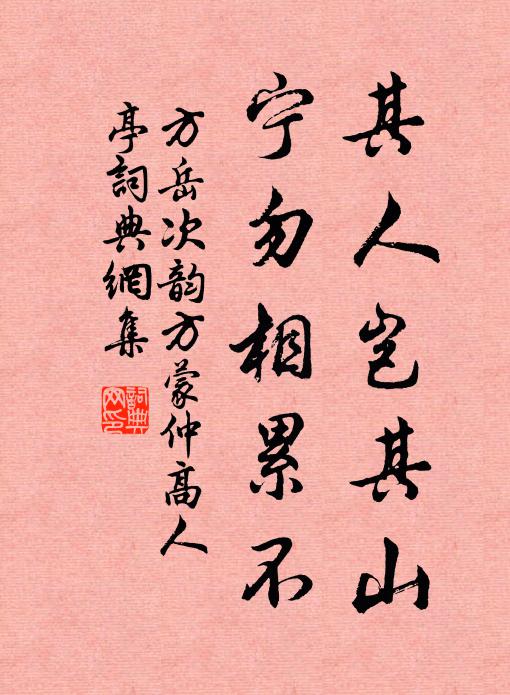 其人岂其山
宁勿相累不
方岳次韵方蒙仲高人
亭詞典網集
詞典
网印